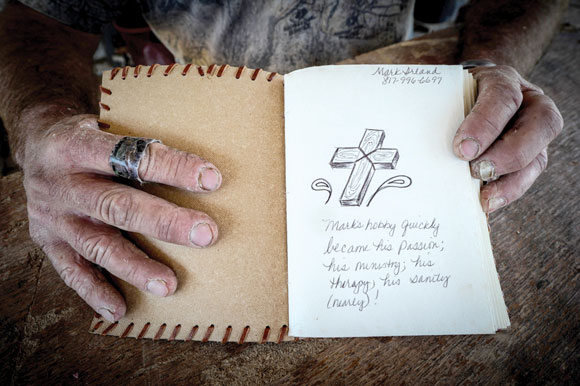 Mark Ireland
817-996-6697
Mark's hobby quickly
became his passion;
his ministry; his
therapy, his sanity
(nearly)!